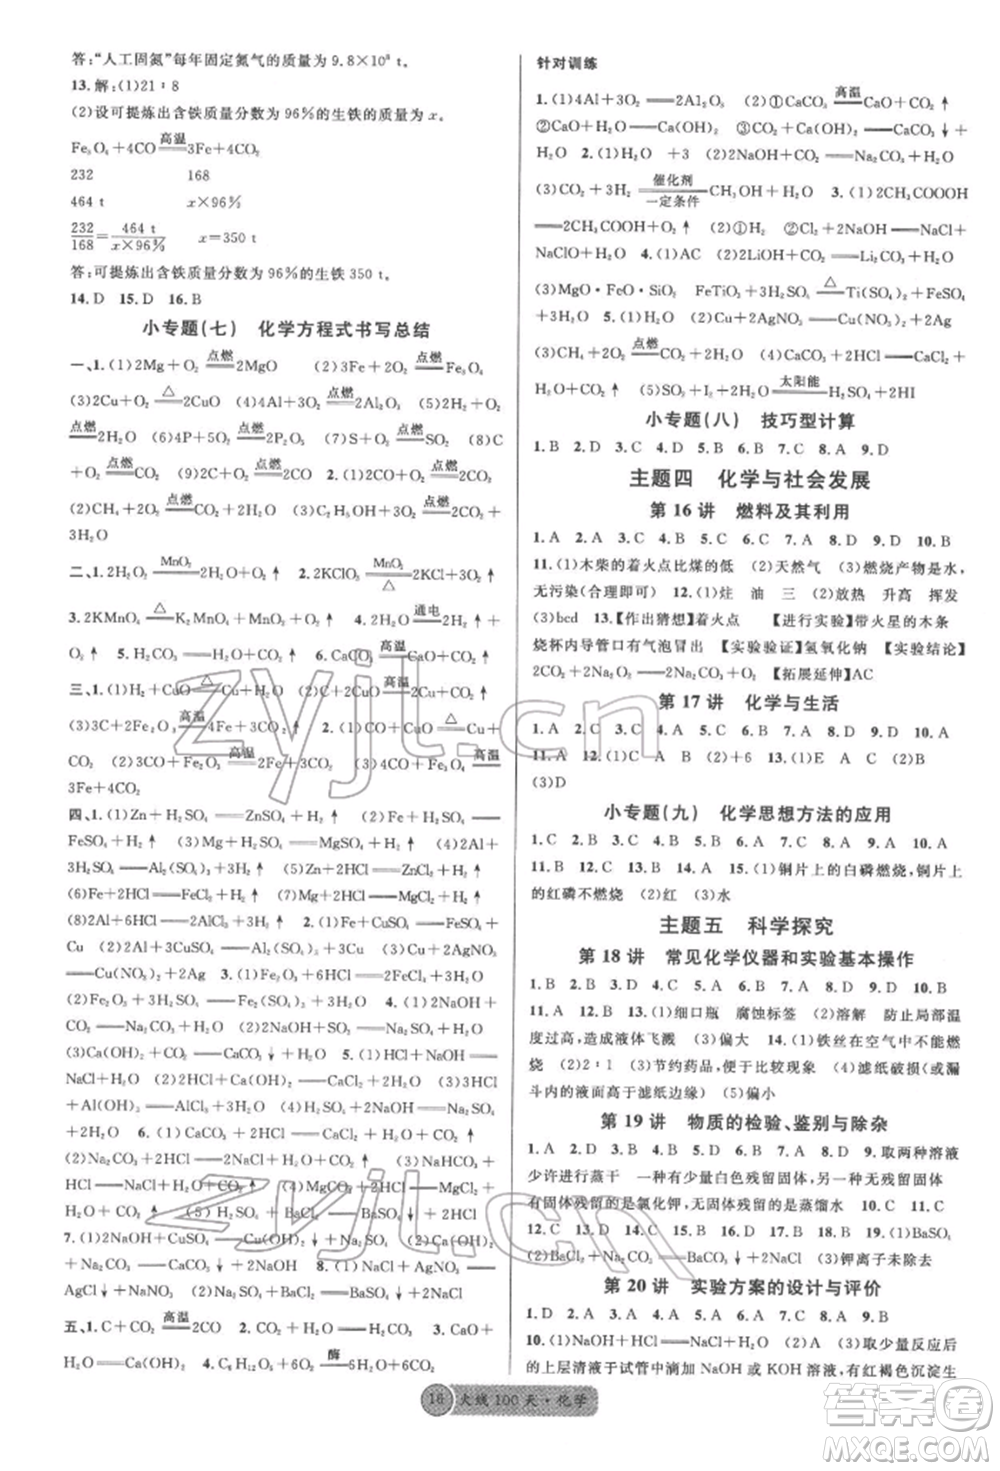 答:“人工固氮”每年固定氮气的质量为 9.8×10⁸ t。
13.解:(1)21∶8
(2)设可提炼出含铁质量分数为 96%的生铁的质量为 x。
Fe₃O₄+4CO 高温 3Fe+4CO₂
232 168
464 t x×96%
232/168 = 464 t/(x×96%) x=350 t
答:可提炼出含铁质量分数为 96%的生铁 350 t。
14.D 15.D 16.B
小专题(七) 化学方程式书写总结
一、1.(1)2Mg+O₂ 点燃 2MgO (2)3Fe+2O₂ 点燃 Fe₃O₄
(3)2Cu+O₂ △ 2CuO (4)4Al+3O₂ 点燃 2Al₂O₃ (5)2H₂+O₂
点燃 2H₂O (6)4P+5O₂ 点燃 2P₂O₅ (7)S+O₂ 点燃 SO₂ (8)C
+O₂ 点燃 CO₂ (9)2C+O₂ 点燃 2CO 2.(1)2CO+O₂ 点燃 2CO₂
(2)CH₄+2O₂ 点燃 CO₂+2H₂O (3)C₂H₅OH+3O₂ 点燃 2CO₂+
3H₂O
二、1.2H₂O₂ MnO₂ 2H₂O+O₂↑ 2.2KClO₃ MnO₂ △ 2KCl+3O₂↑
3.2KMnO₄ △ K₂MnO₄+MnO₂+O₂↑ 4.2H₂O 通电 2H₂↑
+O₂↑ 5.H₂CO₃══H₂O+CO₂↑ 6.CaCO₃ 高温 CaO+CO₂↑
三、1.(1)H₂+CuO △ Cu+H₂O (2)C+2CuO 高温 2Cu+CO₂↑
(3)3C+2Fe₂O₃ 高温 4Fe+3CO₂↑ 2.(1)CO+CuO △ Cu+
CO₂ (2)3CO+Fe₂O₃ 高温 2Fe+3CO₂ (3)4CO+Fe₃O₄ 高温
3Fe+4CO₂
四、1.(1)Zn+H₂SO₄══ZnSO₄+H₂↑ (2)Fe+H₂SO₄══
FeSO₄+H₂↑ (3)Mg+H₂SO₄══MgSO₄+H₂↑ (4)2Al+
3H₂SO₄══Al₂(SO₄)₃+3H₂↑ (5)Zn+2HCl══ZnCl₂+H₂↑
(6)Fe+2HCl══FeCl₂+H₂↑ (7)Mg+2HCl══MgCl₂+H₂↑
(8)2Al+6HCl══2AlCl₃+3H₂↑ 2.(1)Fe+CuSO₄══FeSO₄+
Cu (2)2Al+3CuSO₄══Al₂(SO₄)₃+3Cu (3)Cu+2AgNO₃══
Cu(NO₃)₂+2Ag 3.(1)Fe₂O₃+6HCl══2FeCl₃+3H₂O
(2)Fe₂O₃+3H₂SO₄══Fe₂(SO₄)₃+3H₂O (3)CuO+2HCl══
CuCl₂+H₂O (4)CuO+H₂SO₄══CuSO₄+H₂O 4.(1)2NaOH+
CO₂══Na₂CO₃+H₂O (2)2NaOH+SO₂══Na₂SO₃+H₂O
(3)Ca(OH)₂+CO₂══CaCO₃↓+H₂O 5.(1)NaOH+HCl══
NaCl+H₂O (2)Ca(OH)₂+2HCl══CaCl₂+2H₂O (3)3HCl
+Al(OH)₃══AlCl₃+3H₂O (4)2NaOH+H₂SO₄══Na₂SO₄+
2H₂O 6.(1)CaCO₃+2HCl══CaCl₂+H₂O+CO₂↑
(2)Na₂CO₃+2HCl══2NaCl+H₂O+CO₂↑
(4)MgCO₃+2HCl══MgCl₂+
H₂O+CO₂↑ (5)H₂SO₄+BaCl₂══BaSO₄↓+2HCl
7.(1)2NaOH+CuSO₄══Cu(OH)₂↓+Na₂SO₄ (2)Ca(OH)₂
+Na₂CO₃══CaCO₃↓+2NaOH 8.(1)NaCl+AgNO₃══
AgCl↓+NaNO₃ (2)Na₂SO₄+BaCl₂══BaSO₄↓+2NaCl
五、1.C+CO₂ 高温 2CO 2.CO₂+H₂O══H₂CO₃ 3.CaO+
H₂O══Ca(OH)₂ 4.C₆H₁₂O₆+6O₂ 酶 6CO₂+6H₂O
针对训练
1.(1)4Al+3O₂══2Al₂O₃ (2)①CaCO₃ 高温 CaO+CO₂↑
②CaO+H₂O══Ca(OH)₂ ③CO₂+Ca(OH)₂══CaCO₃↓+
H₂O 2.(1)H₂O +3 (2)2NaOH+CO₂══Na₂CO₃+H₂O
(3)CO₂+3H₂ 催化剂 一定条件 CH₃OH+H₂O 3.(1)2CH₃COOH
══2CH₃COO+H₂↑ (2)①H₂ ②2Na+2H₂O══
2NaOH+H₂↑ 4.(1)CO₂ (2)Li₂O+H₂O══2LiOH
(3)MgO·FeO·SiO₂ FeTiO₃+3H₂SO₄ △ Ti(SO₄)₂+FeSO₄
+3H₂O 5.(1)BD (2)Cu+2AgNO₃══2Ag+Cu(NO₃)₂
(3)CH₄+2O₂ 点燃 CO₂+2H₂O (4)CaCO₃+2HCl══CaCl₂+
H₂O+CO₂↑ (5)SO₂+I₂+2H₂O 太阳能 H₂SO₄+2HI
小专题(八) 技巧型计算
1.B 2.D 3.C 4.B 5.B 6.D 7.C 8.A 9.D
主题四 化学与社会发展
第 16 讲 燃料及其利用
1.A 2.A 3.C 4.D 5.C 6.C 7.A 8.D 9.D 10.B
11.(1)木柴的着火点比煤的低 (2)天然气 (3)燃烧产物是水,
无污染(合理即可) 12.(1)炷 油 三 (2)放热 升高 挥发
(3)bcd 13.【作出猜想】着火点 【进行实验】带火星的木条
烧杯内导管口有气泡冒出 【实验验证】氢氧化钠 【实验结论】
2CO₂+Na₂O₂══Na₂CO₃+O₂ 【拓展延伸】AC
第 17 讲 化学与生活
1.A 2.C 3.C 4.D 5.A 6.D 7.D 8.A 9.D 10.A
11.B 12.(1)AB (2)+6 13.(1)Fe (2)C₅₅H₇₀MgN₄O₆
(3)D
小专题(九) 化学思想方法的应用
1.C 2.B 3.D 4.C 5.B 6.A 7.D 8.A 9.B 10.A
11.B 12.B 13.D 14.A 15.(1)铜片上的白磷燃烧,铜片上
的红磷不燃烧 (2)红 (3)水
主题五 科学探究
第 18 讲 常见化学仪器和实验基本操作
1.D 2.B 3.B 4.D 5.B 6.A 7.C 8.C 9.C 10.D
11.A 12.B 13.(1)细口瓶 腐蚀标签 (2)溶解 防止局部温
度过高,造成液体飞溅 (3)偏大 14.(1)铁丝在空气中不能燃
烧 (2)2∶1 (3)节约药品,便于比较现象 (4)滤纸破损(或漏
斗内的液面高于滤纸边缘) (5)偏小
第 19 讲 物质的检验、鉴别与除杂
1.A 2.D 3.D 4.C 5.B 6.D 7.A 8.C 9.取两种溶液
少许进行蒸干 一支试管中有少量白色残留固体,另一支没有
有固体残留的是氯化钾,无固体残留的是蒸馏水 10.B 11.C
12.C 13.D 14.C 15.B 16.D 17.B 18.D 19.(1)BaSO₄
(2)BaCl₂+Na₂SO₄══BaSO₄↓+2NaCl (3)钾离子未除去
第 20 讲 实验方案的设计与评价
1.D 2.C 3.C 4.C 5.C 6.D 7.B 8.A 9.B
10.(1)NaOH+HCl══NaCl+H₂O (2)A (3)取少量反应后
的上层清液于试管中滴加 NaOH 或 KOH 溶液,有红褐色沉淀生
16 火线 100 天·化学
zyjl.cn
zyjl.cn
答案圈
MXQE.COM